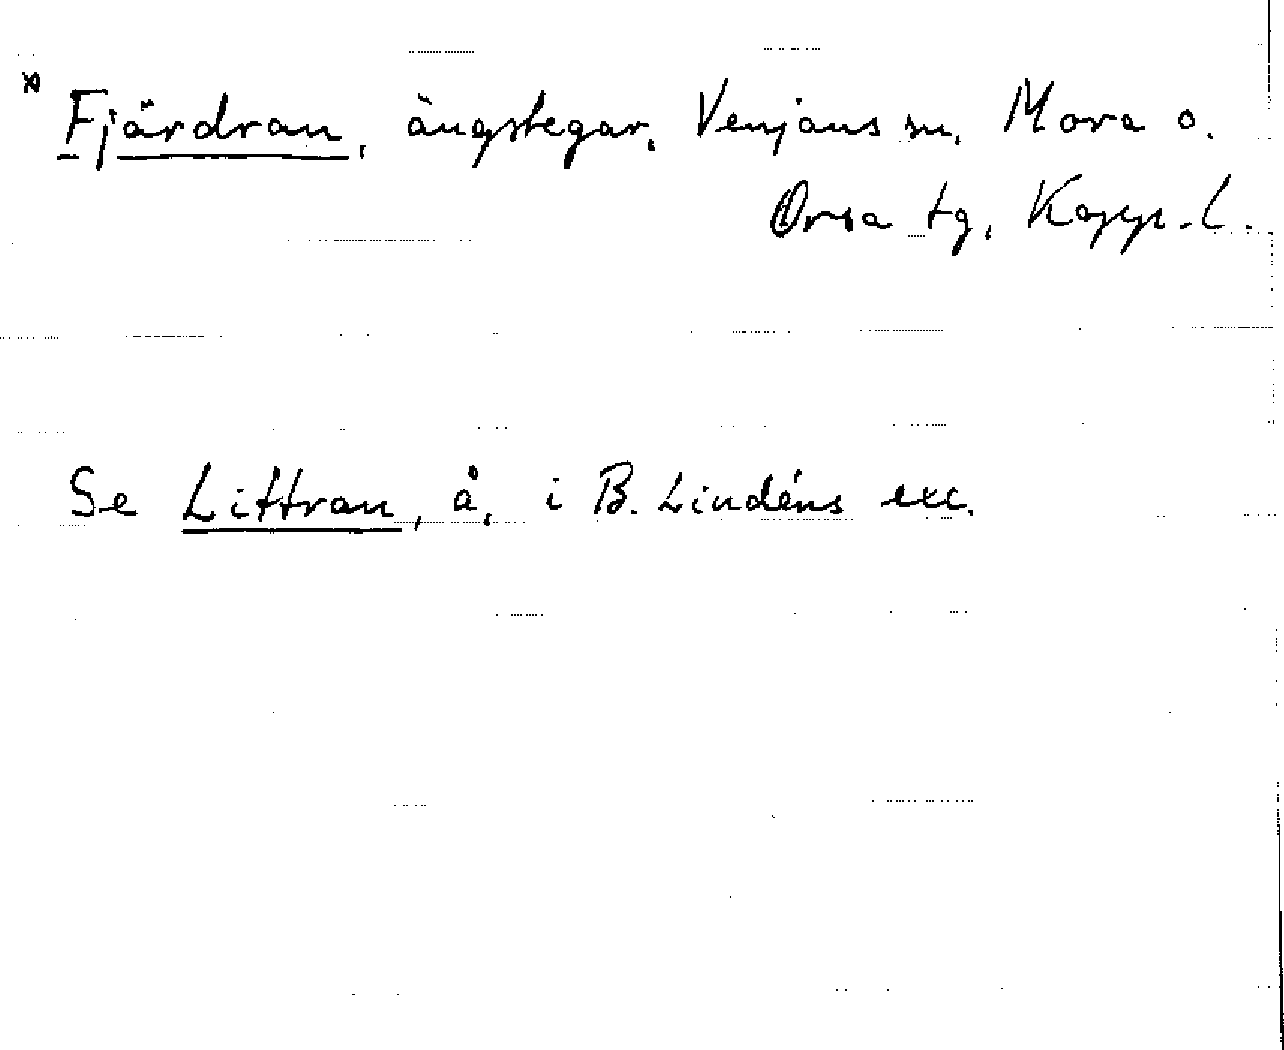 * Fjärdran, ängstegar, Venjans sn, Mora o.
Orsa tg, Kopp. l.
Se Littran, å, i B. Lindéns exc.